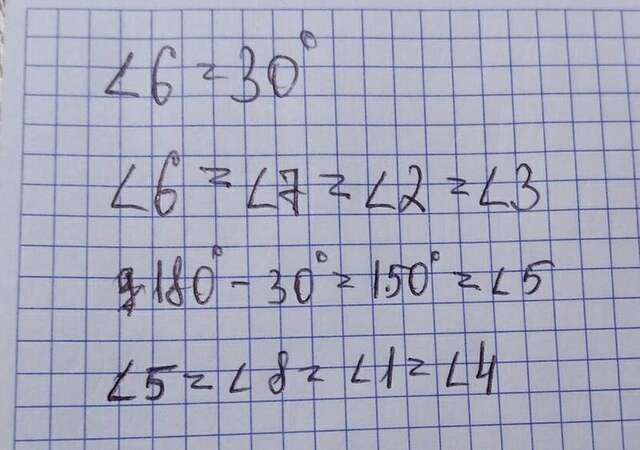 ∠6 = 30°
∠6 = ∠7 = ∠2 = ∠3
180° - 30° = 150° = ∠5
∠5 = ∠8 = ∠1 = ∠4